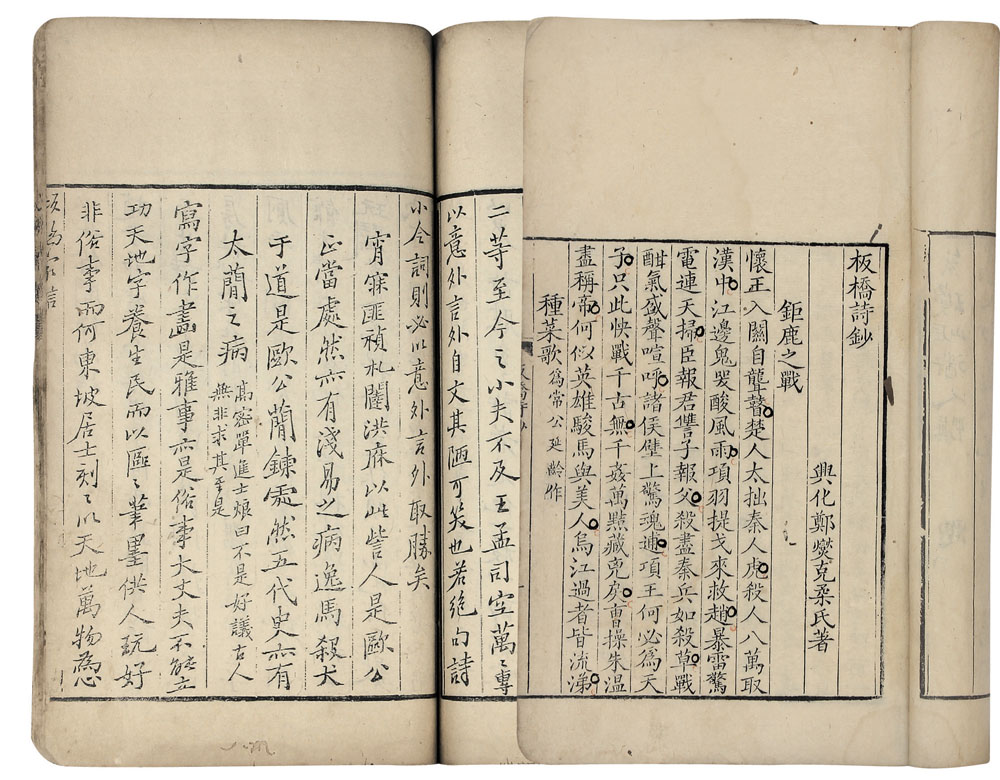 板橋詩鈔
興化鄭燮克柔氏著
鉅鹿之戰
懷王入關自聾瞽楚人太拙秦人虎殺人八萬取
漢中江邊鬼哭酸風雨項羽提戈來救趙暴雷驚
電連天掃臣報君讐子報父殺盡秦兵如殺草戰
酣氣盛聲喧呼諸侯壁上驚魂逋項王何必爲天
子只此快戰千古無千姦萬黠藏兇戾曹操朱溫
盡稱帝何似英雄駿馬與美人烏江過者皆流涕
種菜歌 爲常公延齡作
二等至今之小夫不及王孟司空萬〻專
以意外言外自文其陋可笑也若絕句詩
小令詞則必以意外言外取勝矣
宵寐匪禎札闥洪庥以此訾人是歐公
正當處然亦有淺易之病逸馬殺犬
于道是歐公蕳鍊處然五代史亦有
太蕳之病 高密單進士烺曰不是好議古人
無非求其至是
寫字作畫是雅事亦是俗事大丈夫不能立
功天地字養生民而以區〻筆墨供人玩好
非俗事而何東坡居士刻〻以天地萬物爲
板橋家信